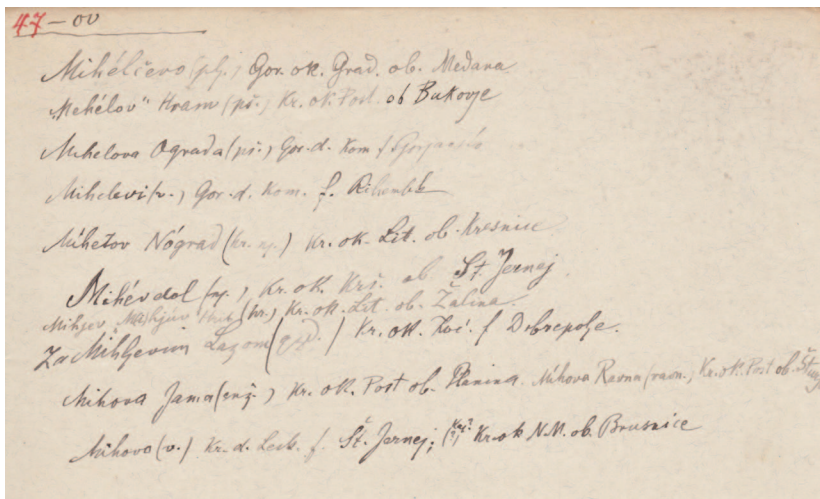 47 - ov
Mihélčevo (plj.) Gor. ok. Grad. ob. Medana
"Mehélov" Hram (pš.) Kr. ok. Post. ob Bukovje
Mihelova Ograda (pš.) Gor. d. Kom f Gorjansko
Mihelevi (v.) Gor. d. Kom. f. Rihenbk
Mihetov Nógrad (hr. nj.) Kr. ok. Lit. ob. Kresnice
Mihévdol (nj.) Kr. ok. Krš. ob. Št. Jernej.
Mihjev (hr.) Kr. ok. Lit. ob. Žalina.
Za Mihljevim Lazom Kr. ok. Koč. f Dobrepolje.
Mihova Jama Kr. ok. Post ob. Planina. Mihova Ravna (ravn.) Kr. ok. Post ob.
Mihovo (v.) Kr. d. Lesk. f. Št. Jernej; Kr. ok N.M. ob. Brusnice